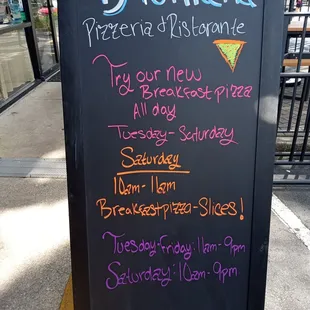 Pizzeria & Ristorante
Try our new
Breakfast pizza
All day
Tuesday-Saturday
Saturday
10am-11am
Breakfast pizza-Slices!
Tuesday-Friday: 11am-9pm
Saturday: 10am-9pm